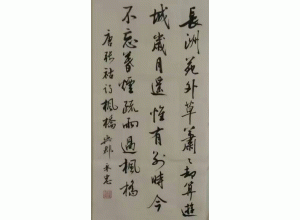 長洲苑外草蕭々却算遊
城歲月遙惟有別時今
不忘暮煙疏雨過楓橋
唐張祜詩楓橋